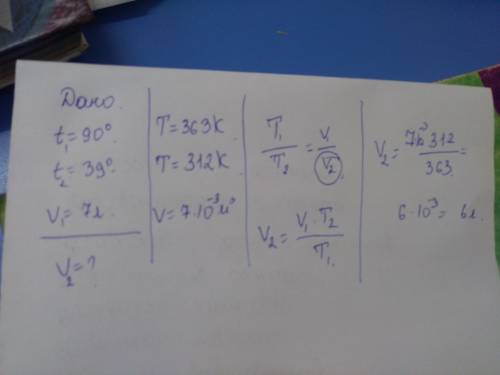 Дано.
t₁=90°
t₂=39°.
V₁=7л.
V₂=?
T=363K
T=312K
V=7·10⁻³м³
T₁/T₂=V₁/V₂
V₂=V₁·T₂/T₁.
V₂=7·10⁻³·312/363=
6·10⁻³=6л.